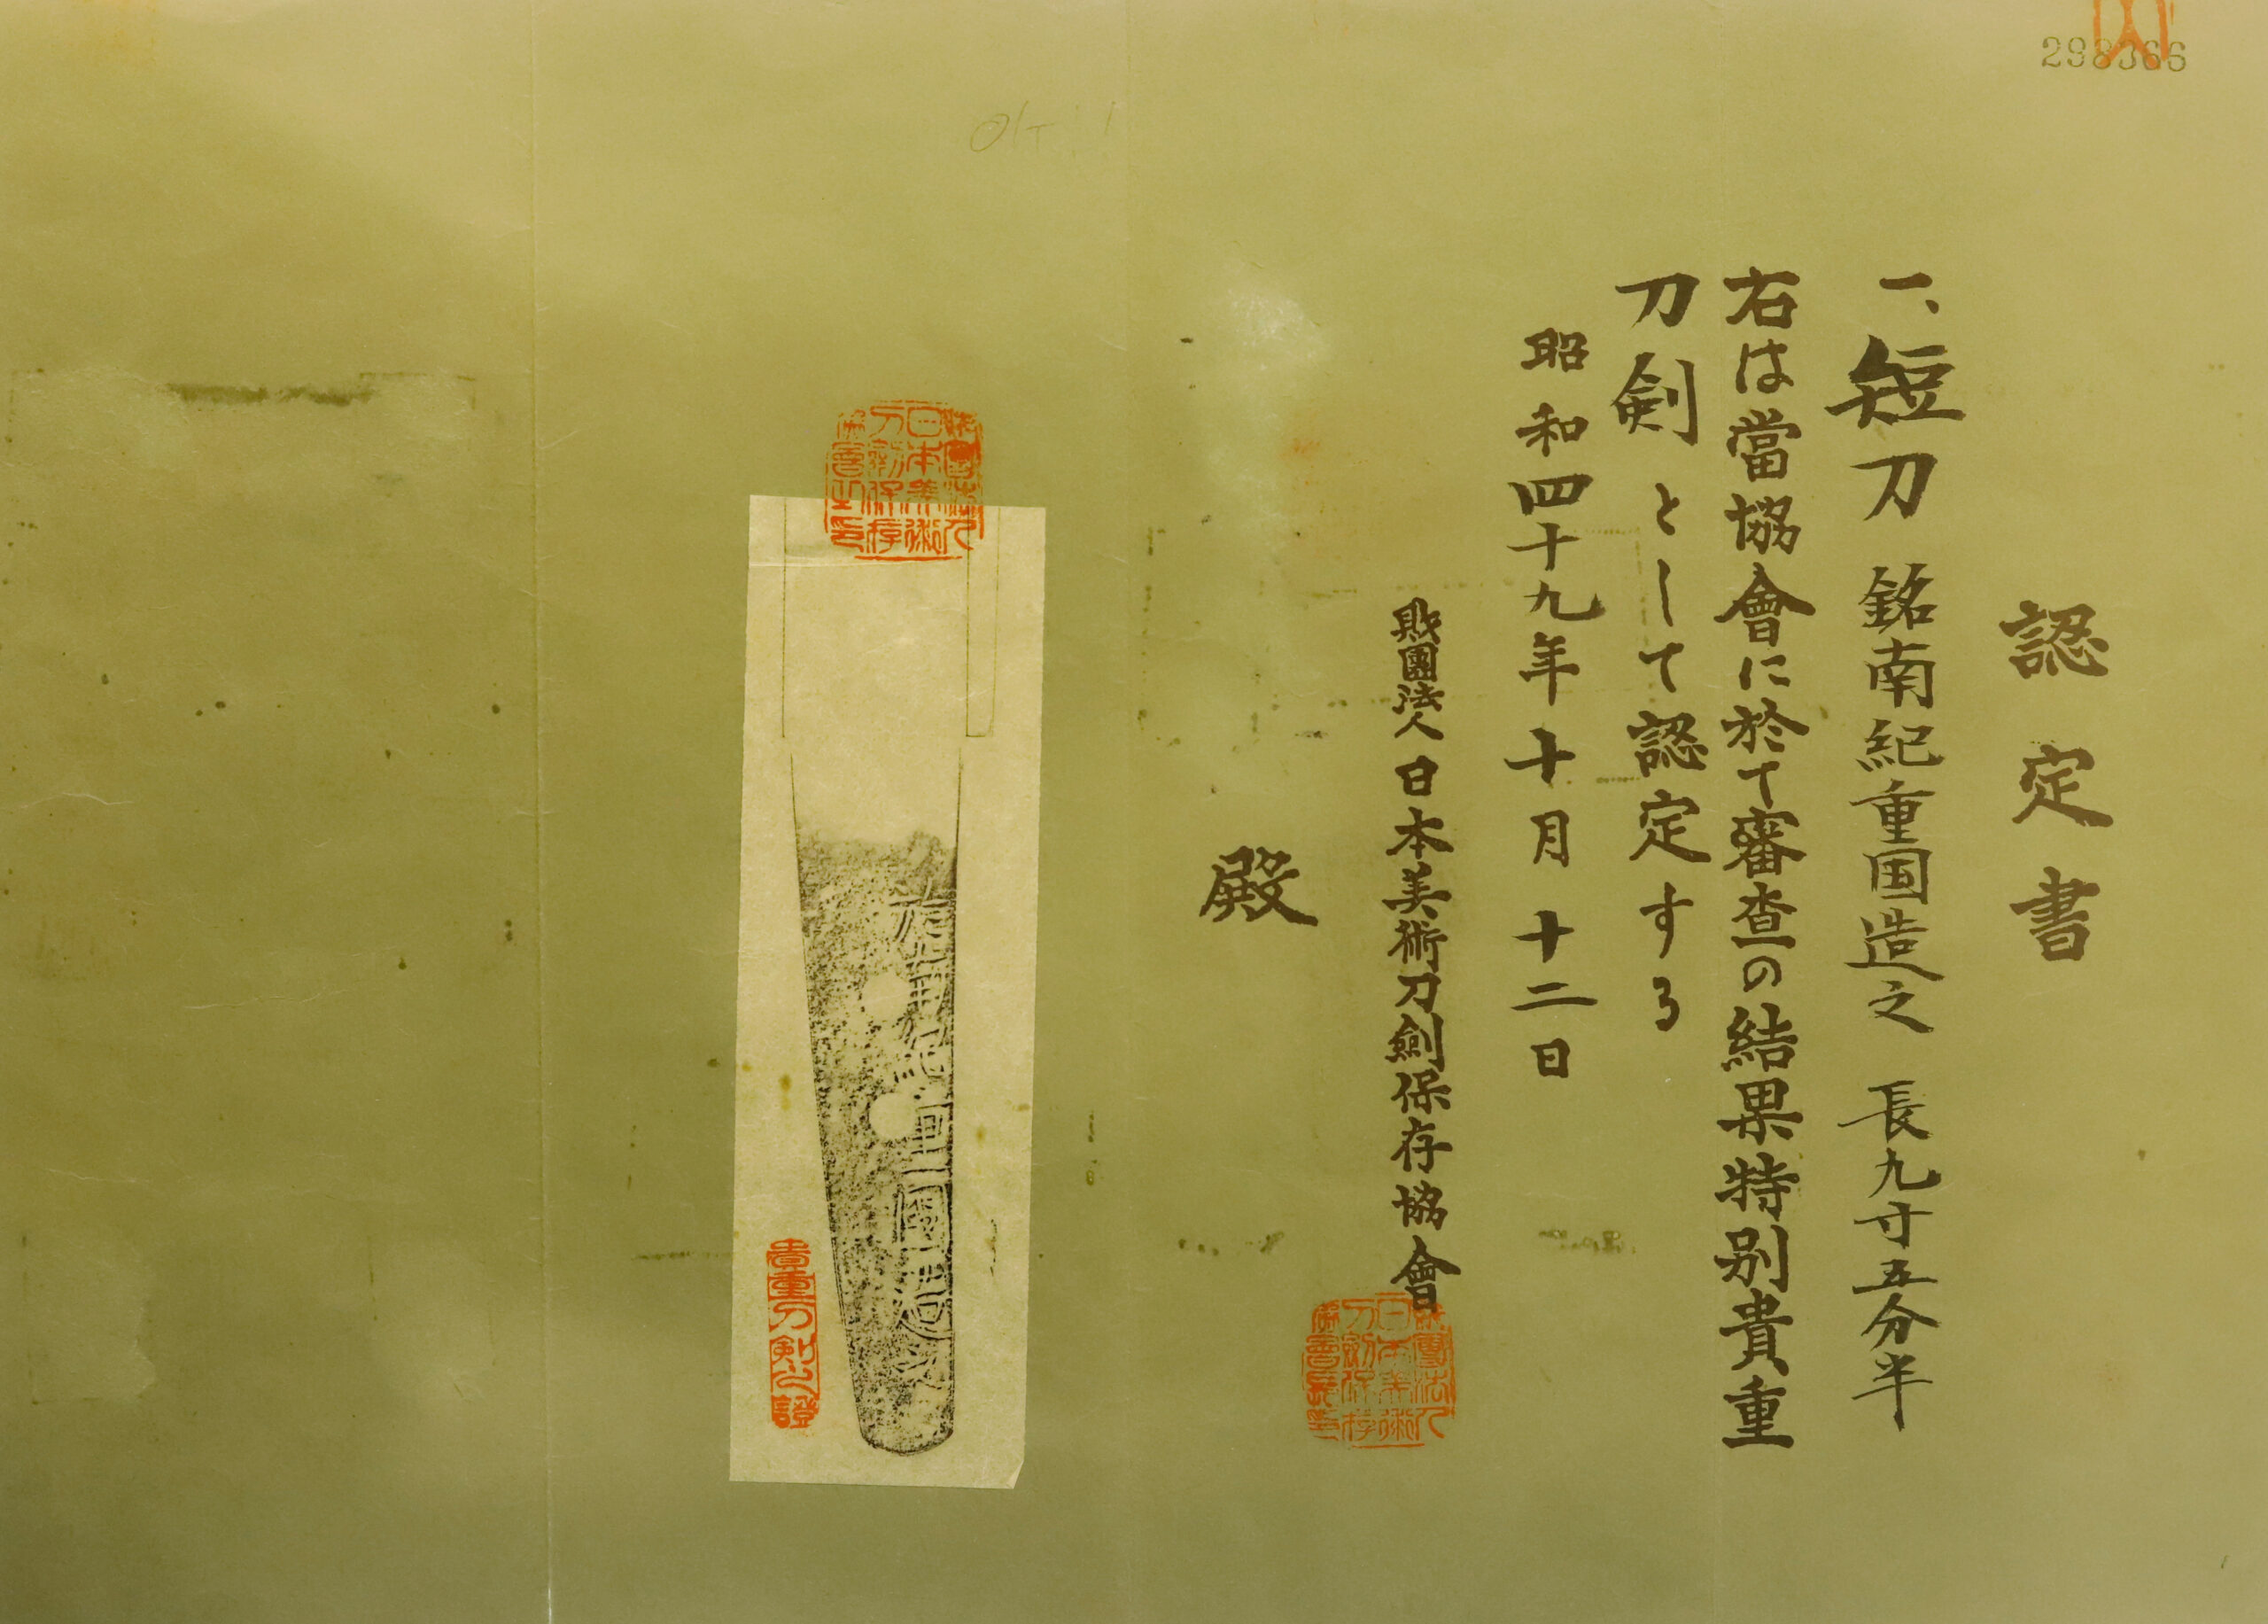 298366
認定書
一、短刀 銘南紀重国造之 長九寸五分半
右は當協會に於て審査の結果特別貴重
刀剣として認定する
昭和四十九年十月十二日
財團法人日本美術刀剣保存協會
殿
財團法人
日本美術
刀剣保存
協會長印
於南紀重國造之
財團法人
日本美術
刀剣保存
協會之印
貴重刀剣之證